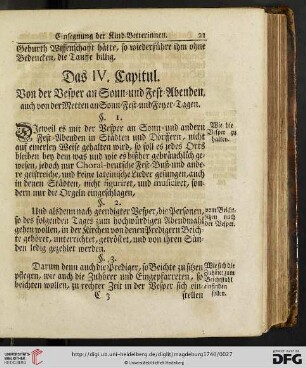 Einsegnung der Kind-Betterinnen. 21
Geburth Wissenschafft hätte, so wiederführe ihm ohne
Bedencken, die Tauffe billig.
Das IV. Capitul.
Von der Vesper an Sonn- und Fest-Abenden,
auch von der Metten an Sonn-Fest- und Feyer-Tagen.
§. 1.
Dieweil es mit der Vesper an Sonn- und andern
Fest-Abenden in Städten und Dörffern, nicht
auf einerley Weise gehalten wird, so soll es jedes Orts
bleiben bey dem was und wie es bißher gebräuchlich ge-
wesen, jedoch nur Choral-deutsche Fest-Buß- und ande-
re geistreiche, und keine lateinische Lieder gesungen, auch
in denen Städten, nicht figuriret, und musiciret, son-
dern nur die Orgeln eingeschlagen.
Wie die
Vesper zu
halten.
§. 2.
Und alsdenn nach geendigter Vesper, die Personen,
so des folgenden Tages zum hochwürdigen Abendmahl
gehen wollen, in der Kirchen von denen Predigern Beich-
te gehöret, unterrichtet, getröstet, und von ihren Sün-
den ledig gezehlet werden.
von Beich-
ten nach
der Vesper.
§. 3.
Darum denn auch die Prediger, so Beichte zu sitzen
pflegen, wie auch die Zuhörer und Eingepfarreten, so
beichten wollen, zu rechter Zeit in der Vesper sich ein-
Wie sich die
Zuhörer zum
Beichtstuhl
einfinden
sollen.
C 3 stellen
http://digi.ub.uni-heidelberg.de/diglit/magdeburg1740/0027
© Universitätsbibliothek Heidelberg
gefördert durch die
DFG